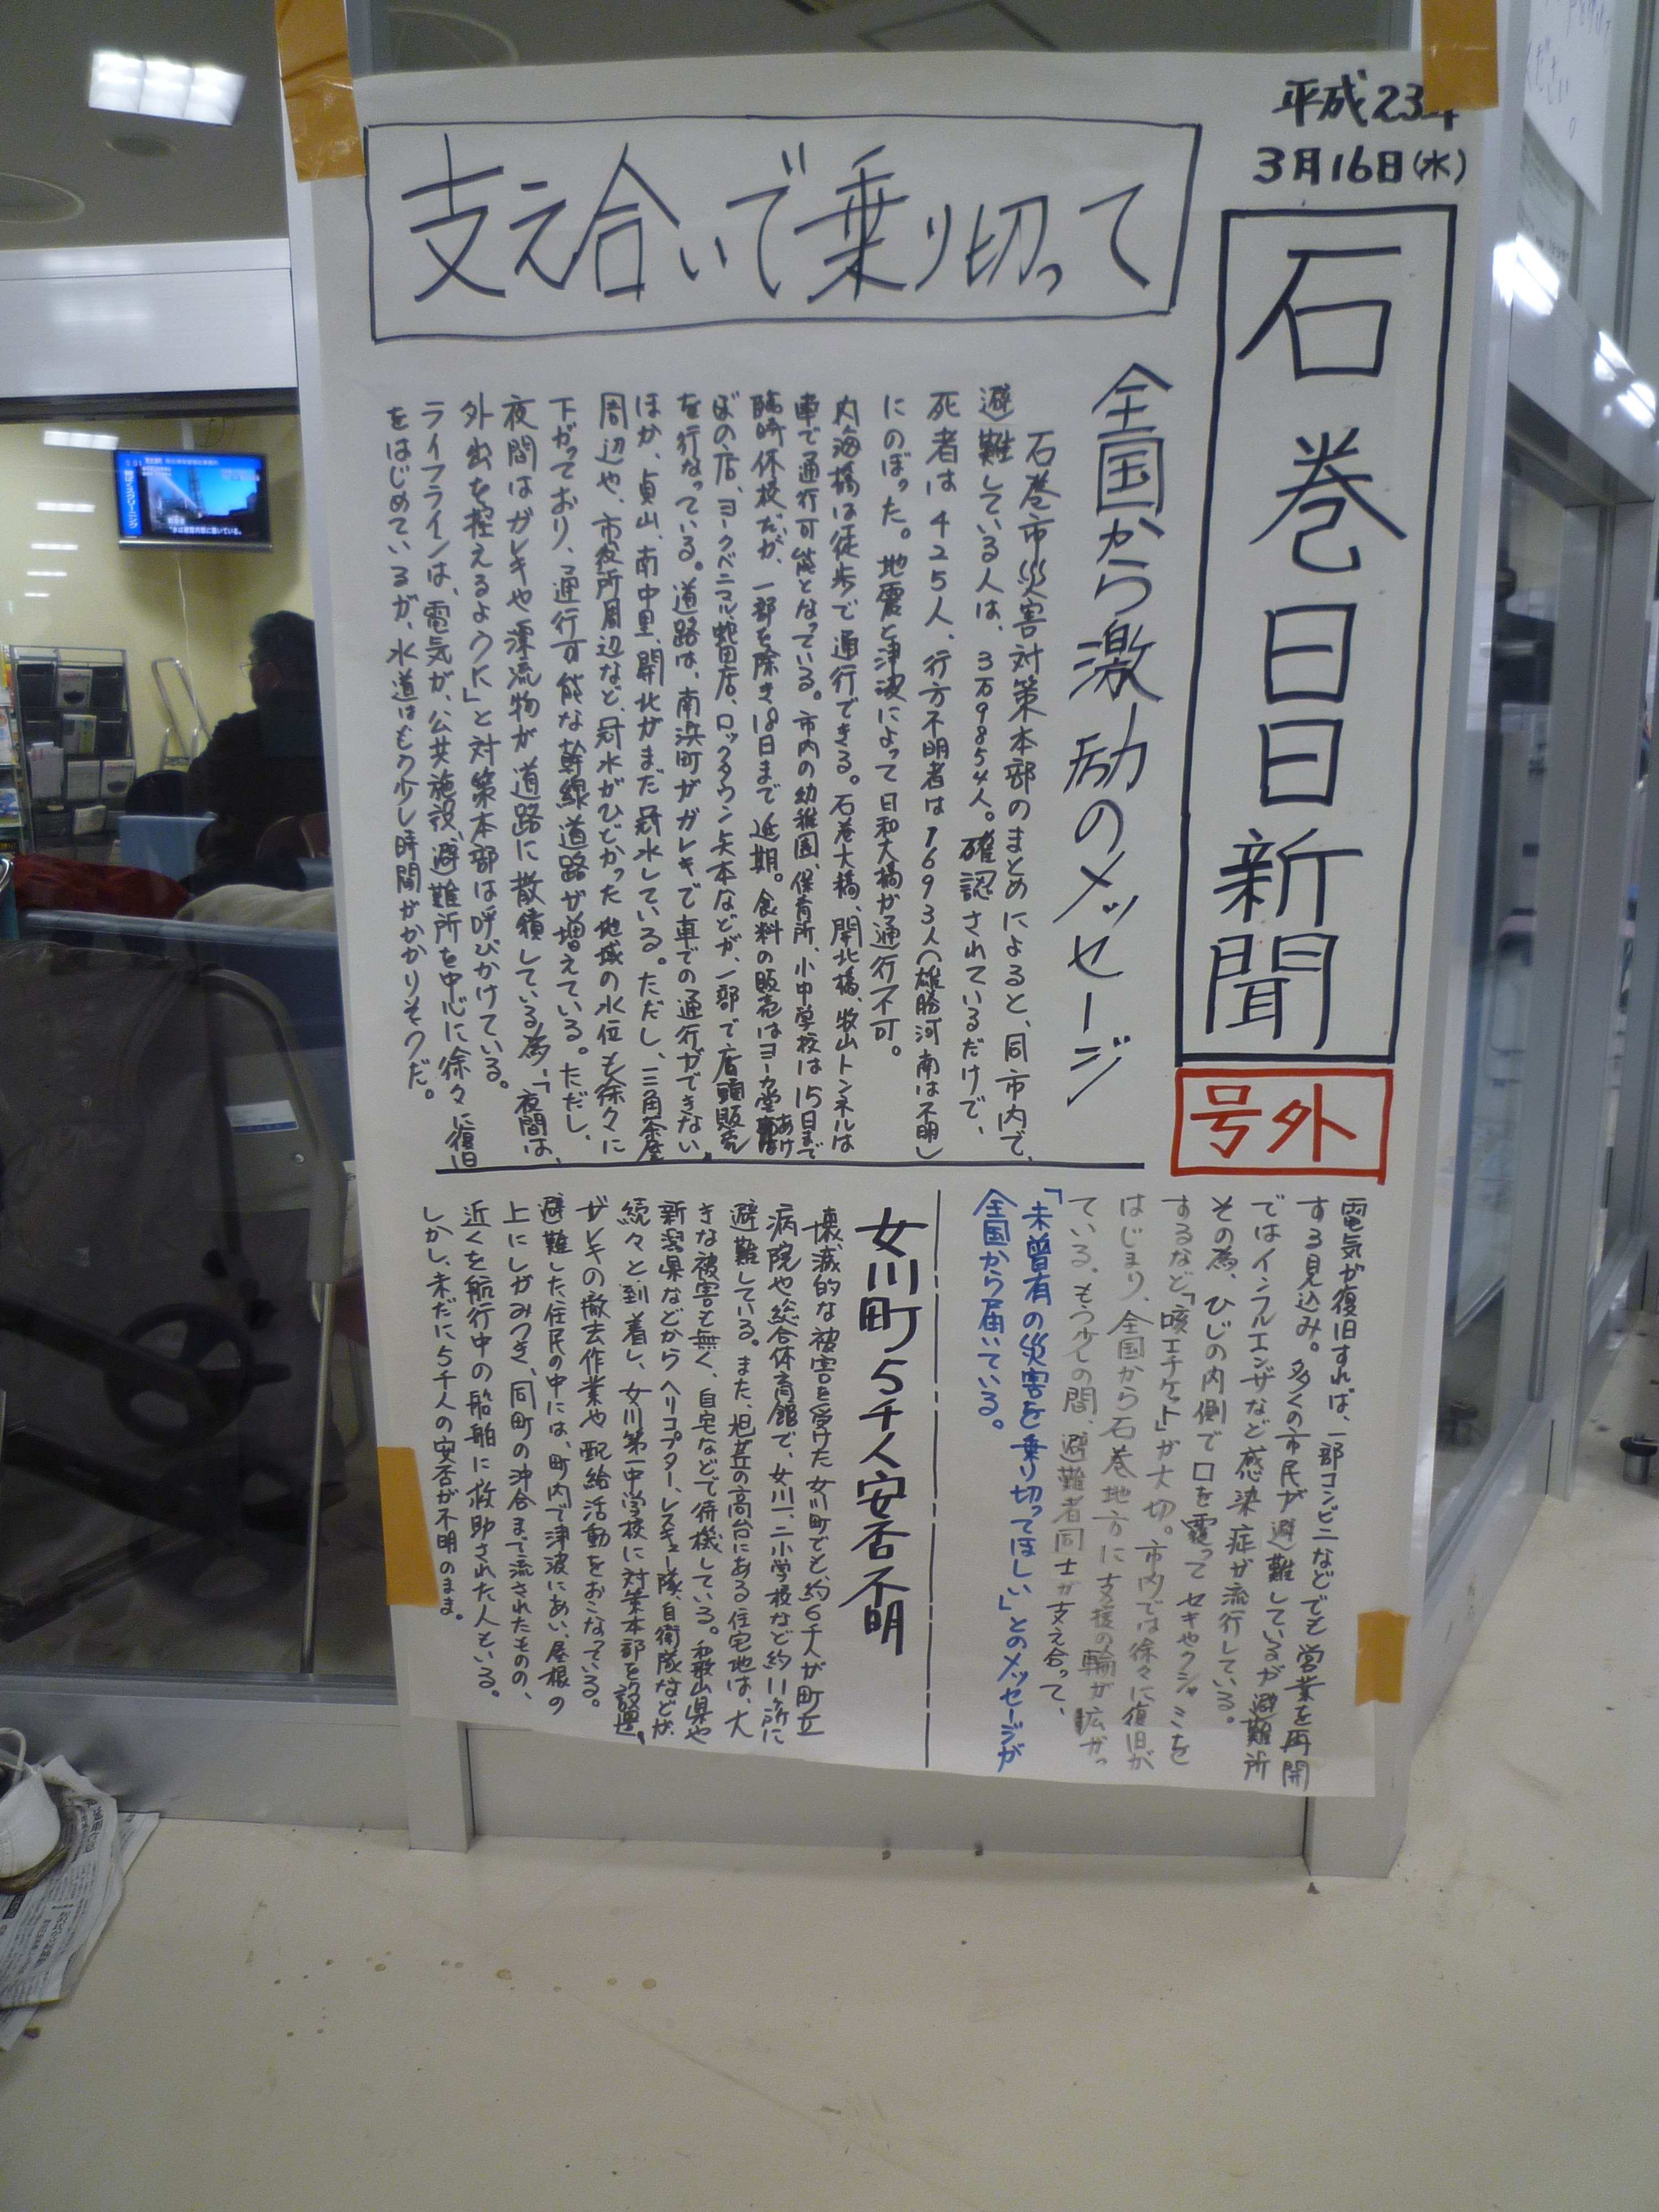 平成23年
3月16日(水)
石巻日日新聞
号外
支え合いで乗り切って
全国から激励のメッセージ
石巻市災害対策本部のまとめによると、同市内で、
避難している人は、3万9854人。確認されているだけで、
死者は425人、行方不明者は1693人(雄勝河南は不明)
にのぼった。地震と津波によって日和大橋が通行不可。
内海橋は徒歩で通行できる。石巻大橋、開北橋、牧山トンネルは
車で通行可能となっている。市内の幼稚園、保育所、小中学校は15日まで
臨時休校だが、一部を除き18日まで延期。食料の販売はヨーカ堂あけ
ぼの店、ヨークベニマル蛇田店、ロックタウン矢本などが、一部で店頭販売
を行なっている。道路は、南浜町がガレキで車での通行ができない。
ほか、貞山、南中里、開北がまだ冠水している。ただし、三角茶屋
周辺や、市役所周辺など、冠水がひどかった地域の水位も徐々に
下がっており、通行可能な幹線道路が増えている。ただし、
夜間はガレキや漂流物が道路に散積している為、「夜間は、
外出を控えるように」と対策本部は呼びかけている。
ライフラインは、電気が、公共施設、避難所を中心に徐々に復旧
をはじめているが、水道はもう少し時間がかかりそうだ。
電気が復旧すれば、一部コンビニなどでも営業を再開
する見込み。多くの市民が避難しているが避難所
ではインフルエンザなど感染症が流行している。
その為、ひじの内側で口を覆ってセキやクシャミを
するなど「咳エチケット」が大切。市内では徐々に復旧が
はじまり、全国から石巻地方に支援の輪が広がっ
ている。もう少しの間、避難者同士が支え合って、
「未曾有の災害を乗り切ってほしい」とのメッセージが
全国から届いている。
女川町5千人安否不明
壊滅的な被害を受けた女川町でも、約6千人が町立
病院や総合体育館で、女川一、二小学校など約11ヶ所に
避難している。また、旭丘の高台にある住宅地は、大
きな被害も無く、自宅などで待機している。和歌山県や
新潟県などからヘリコプター、レスキュー隊、自衛隊などが
続々と到着し、女川第一中学校に対策本部を設置。
ガレキの撤去作業や配給活動をおこなっている。
避難した住民の中には、町内で津波にあい、屋根の
上にしがみつき、同町の沖合まで流されたものの、
近くを航行中の船舶に救助された人もいる。
しかし、未だに5千人の安否が不明のまま。